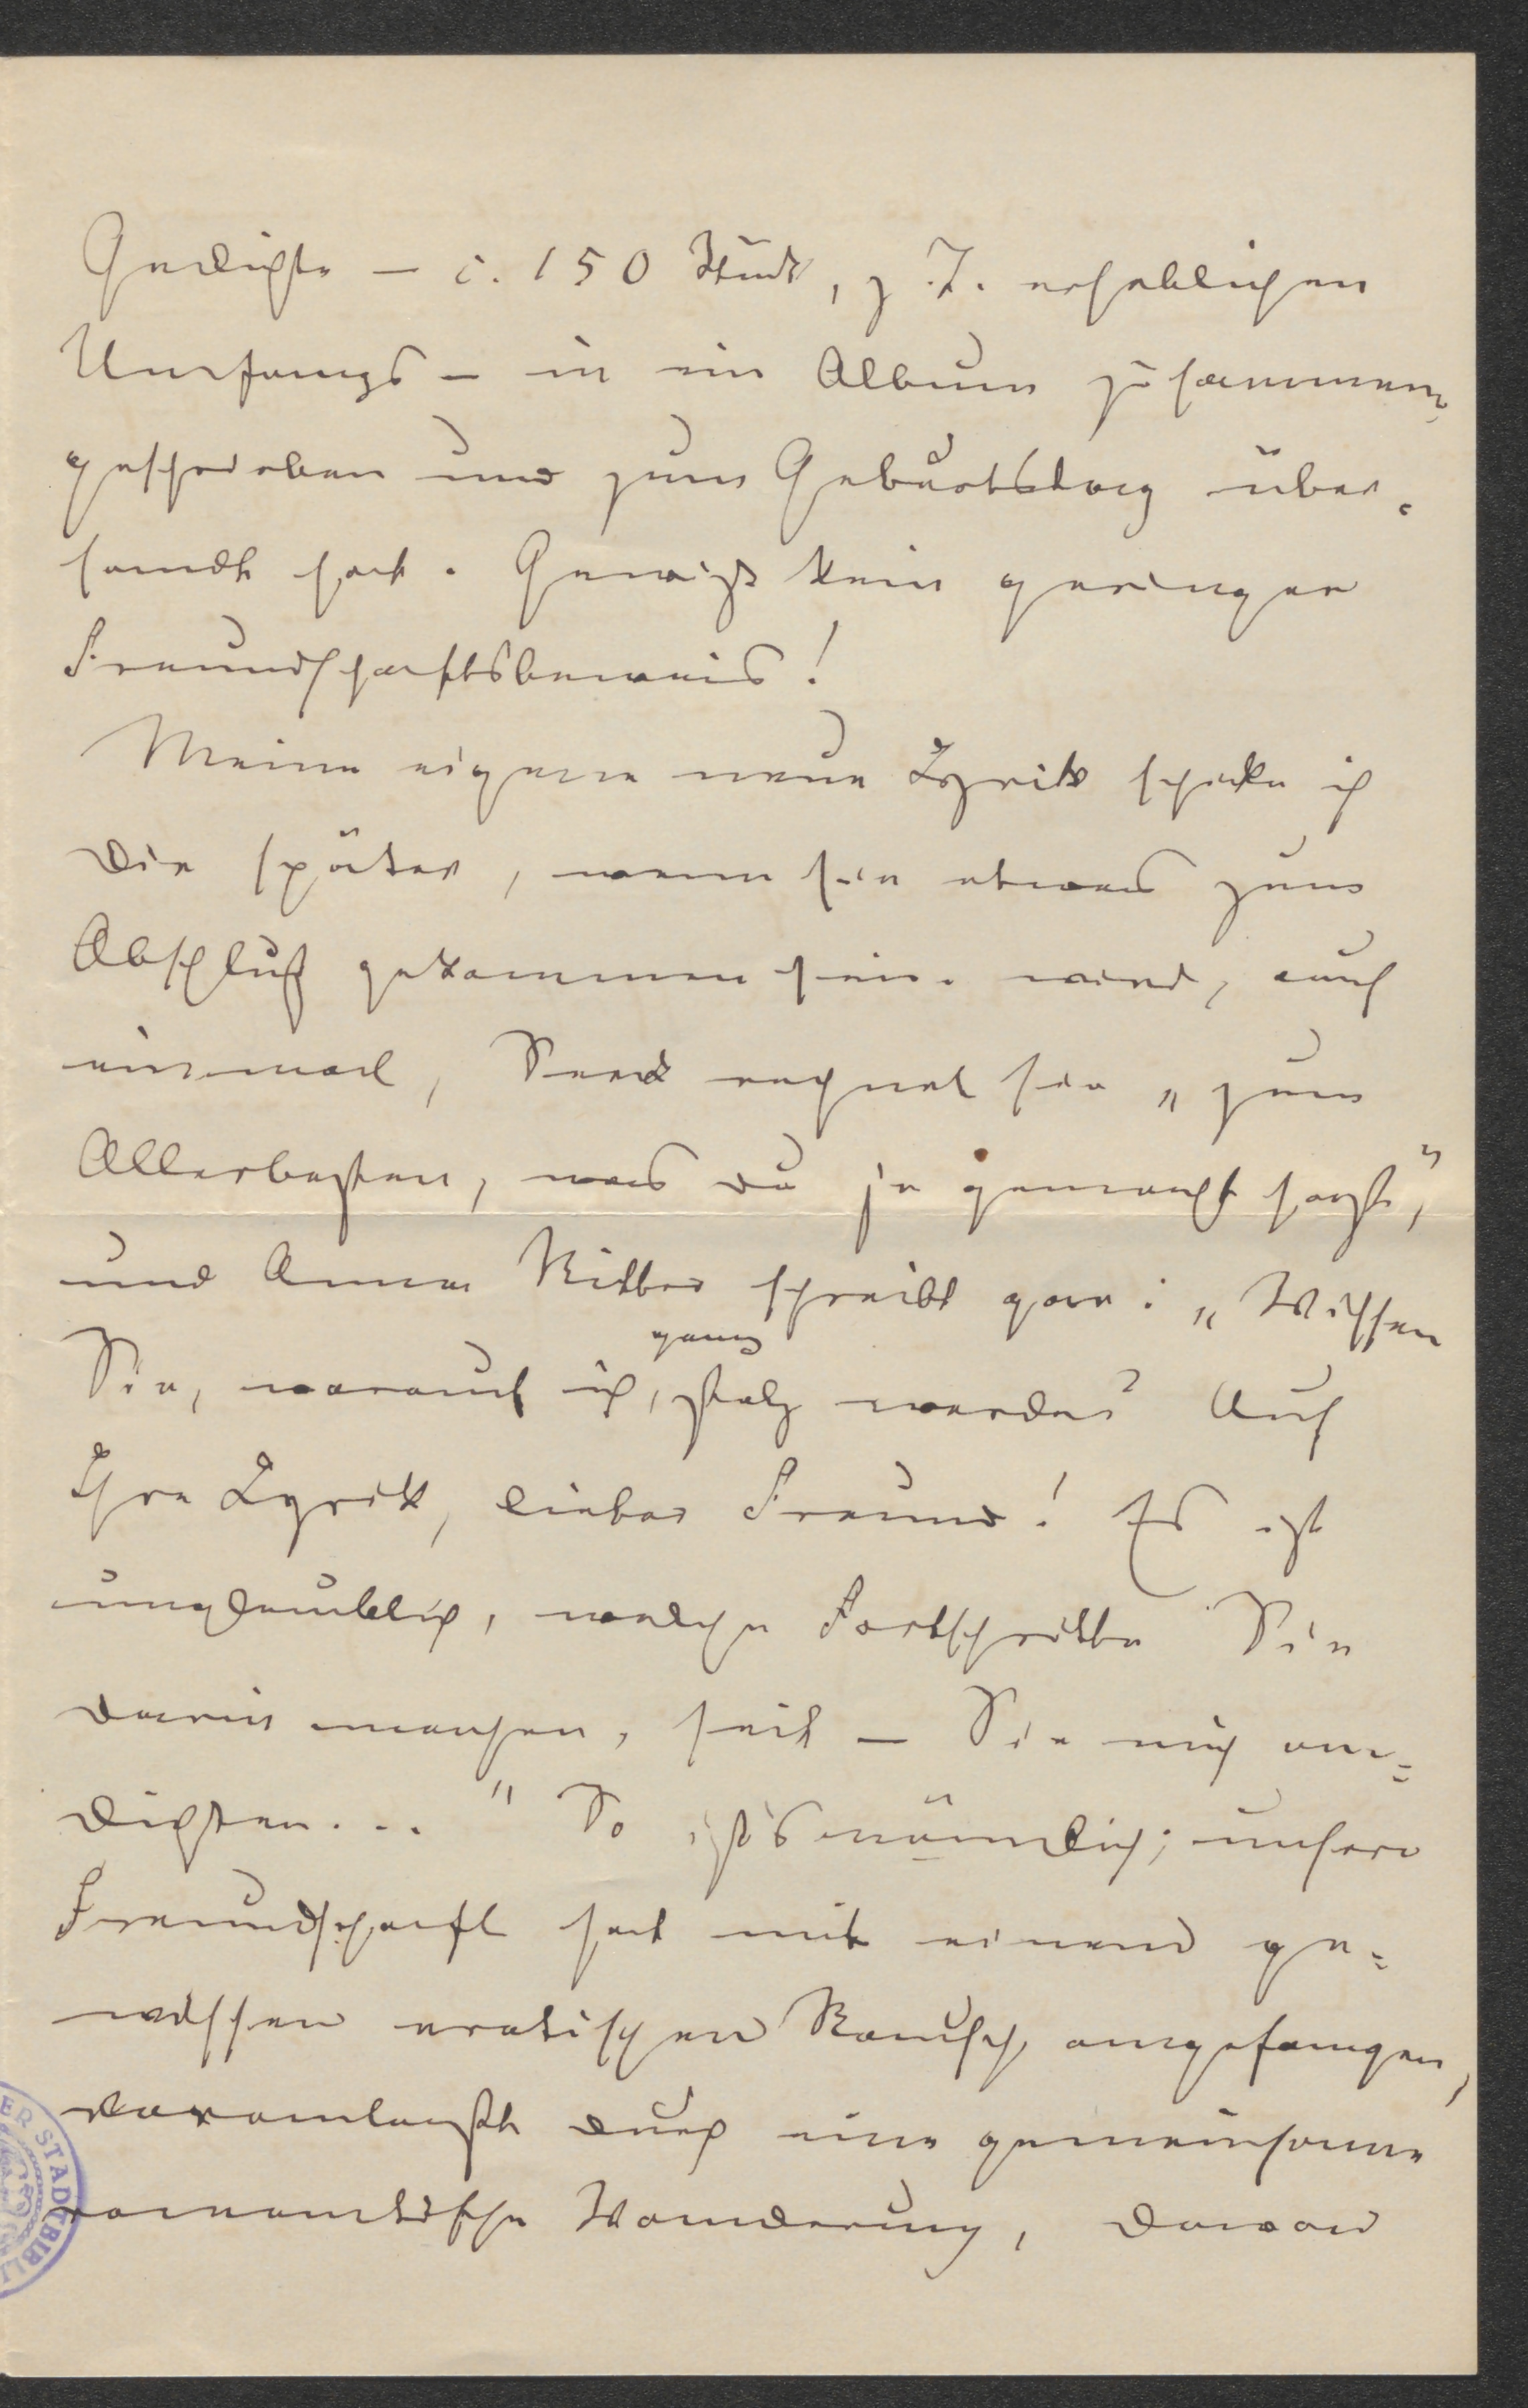 Gedichte — c. 150 Stück, z. T. erheblichen
Umfangs — in ein Album zusammen-
geschrieben und zum Geburtstag über-
sandt hat. Gewiß kein geringer
Freundschaftsbeweis!
Meine eigene neue Lyrik schicke ich
Dir später, wenn sie etwas zum
Abschluß gekommen sein wird, auf
einmal, rechnet sie „zum
Allerbesten, was du je gemacht hast,"
und Anna Ritter schreibt gar: „Wissen
Sie, worauf ich ganz stolz werde? Auf
Ihre Lyrik, lieber Freund! Es ist
unglaublich, welche Fortschritte Sie
darin machen, seit — Sie mich an=
dichten..." So ist's nämlich; unsere
Freundschaft hat mit einem ge=
wissen erotischen Rausch angefangen,
veranlaßt durch eine gemeinsame
romantische Wanderung, davon
ER STADTBIBLI